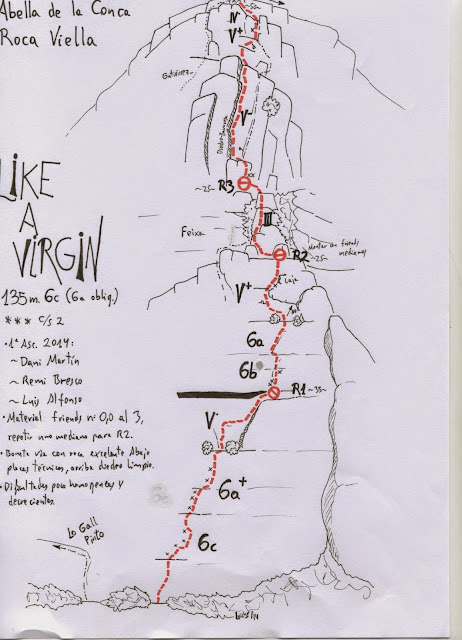 Abella de la Conca
Roca Viella
~50~
IV
V+
V-
~25~ R3
III
Feixa
R2
Montar con friends
medianos
~25~
Laja
V+
LIKE
A
VIRGIN
135m. 6c (6a oblig.)
*** c/s 2
• 1ª Asc. 2014:
~ Dani Martín
~ Remi Bresco
~ Luis Alfonso
• Material friends nº 0,0 al 3,
repetir uno mediano para R2.
• Bonita vía con roca excelente. Abajo
placas técnicas, arriba diedro limpio.
• Dificultades poco homogeneas y
decrecientes.
6a
6b
R1 ~35~
V·
6a+
6c
Lo Gall
Pinto